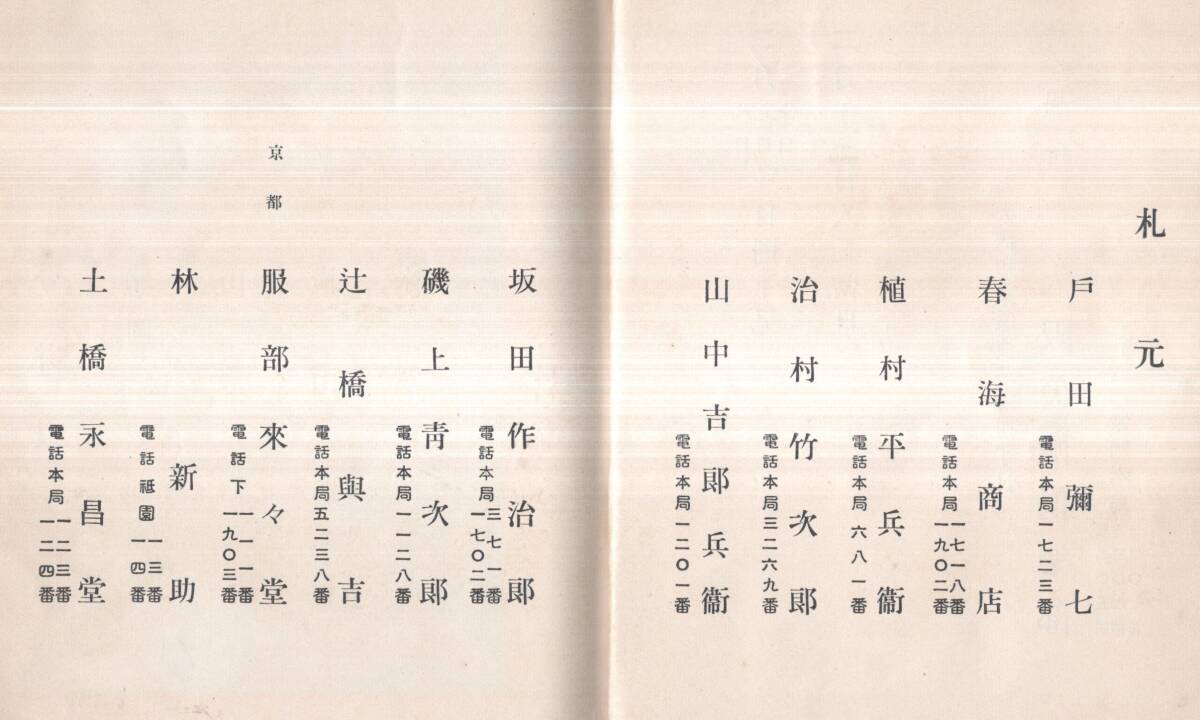 札元
戶田彌七
電話本局一七二三番
春海商店
電話本局一七一八番
一九〇二番
植村平兵衞
電話本局六八一番
治村竹次郞
電話本局三二六九番
山中吉郞兵衞
電話本局一二〇一番
坂田作治郞
電話本局三七一番
一七〇二番
磯上靑次郞
電話本局一一二八番
辻橋與吉
電話本局五二三八番
京都
服部來々堂
電話下一一一番
一九〇三番
林新助
電話祗園一三番
一四番
土橋永昌堂
電話本局一二三番
一二四番